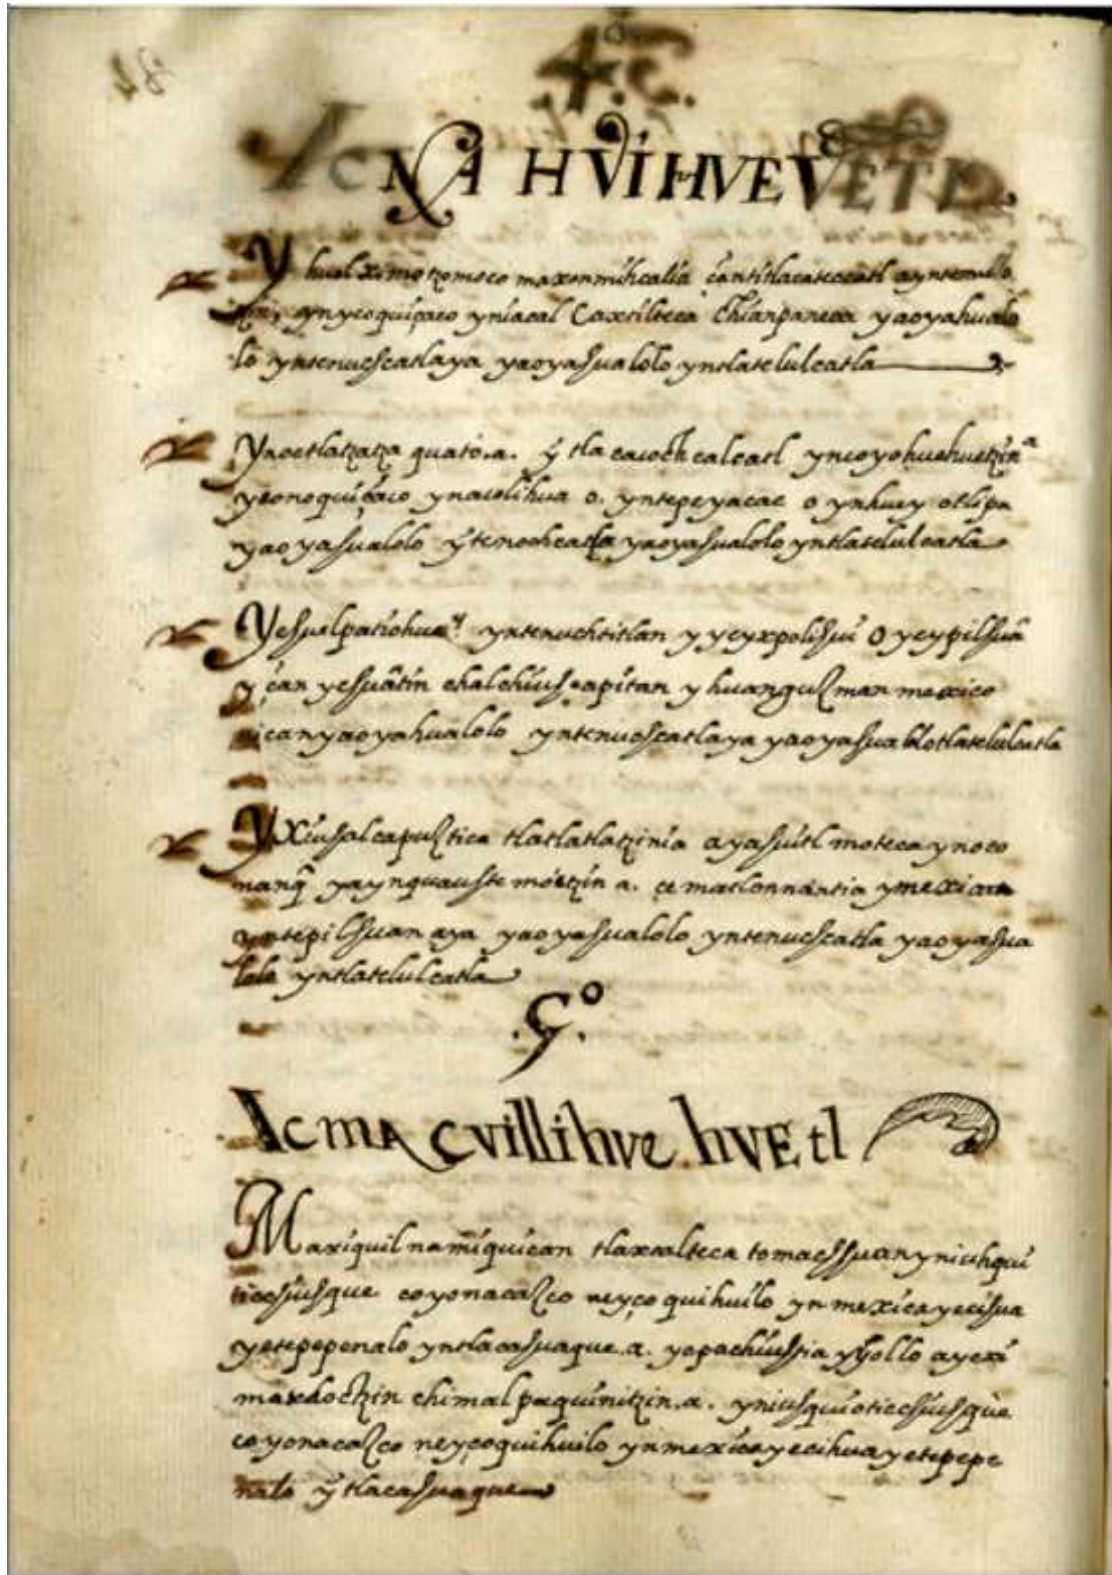 4º.
IC NAHVI HVEVETL.
Y hual ximotzomoco maxonmihcalia çantitlacateccatl ayntemillo
tzin, ynycoquiçaco yniacal Caxtilteca Chianpaneca yaoyahualo
lo yntenuchcatlaya yaoyahualolo yntlatelulcatla
Yaoctlatzatzaquato.a. ỹ tlacauchcalcatl yncoyohuehuetzin a
yeonoquiçaco ynacolihua o. yntepeyacac o ynhuey otlipa
yaoyahualolo ỹtenochcatla yaoyahualolo yntlatelulcatla
Yehuelpatiohua y! yntenuchtitlan y yeyxpolihui O yeypilhuã
y çan yehuãtin chalchiuhcapitan y huanguzman mexico
nican yaoyahualolo yntenuchcatlaya yaoyahualolotlatelulcatla
Y Xiuhalcapuztica tlatlatlatzinia ayahuitl moteca ynoco
nanq̃ yaynquauhtemoctzin a. ce matlonnantia ymexicame
yntepilhuan aya yaoyahualolo yntenuchcatla yaoyahua
lolo yntlatelulcatla
.5º.
Ic macvilli hvehvetl
Maxiquilnamiquican tlaxcalteca tomachhuan yniuhqui
ticchiuhque coyonacazco neyçoquihuilo ynmexica yecihua
yetepepenalo yntlacahuaque.a. yopachiuhtia yyollo ayexi
maxdoctzin chimalpaquinitzin.a. yniuhqui oticchiuhque
coyonacazco neyçoquihuilo ynmexica yecihua yetepepe
nalo ỹ tlacahuaque